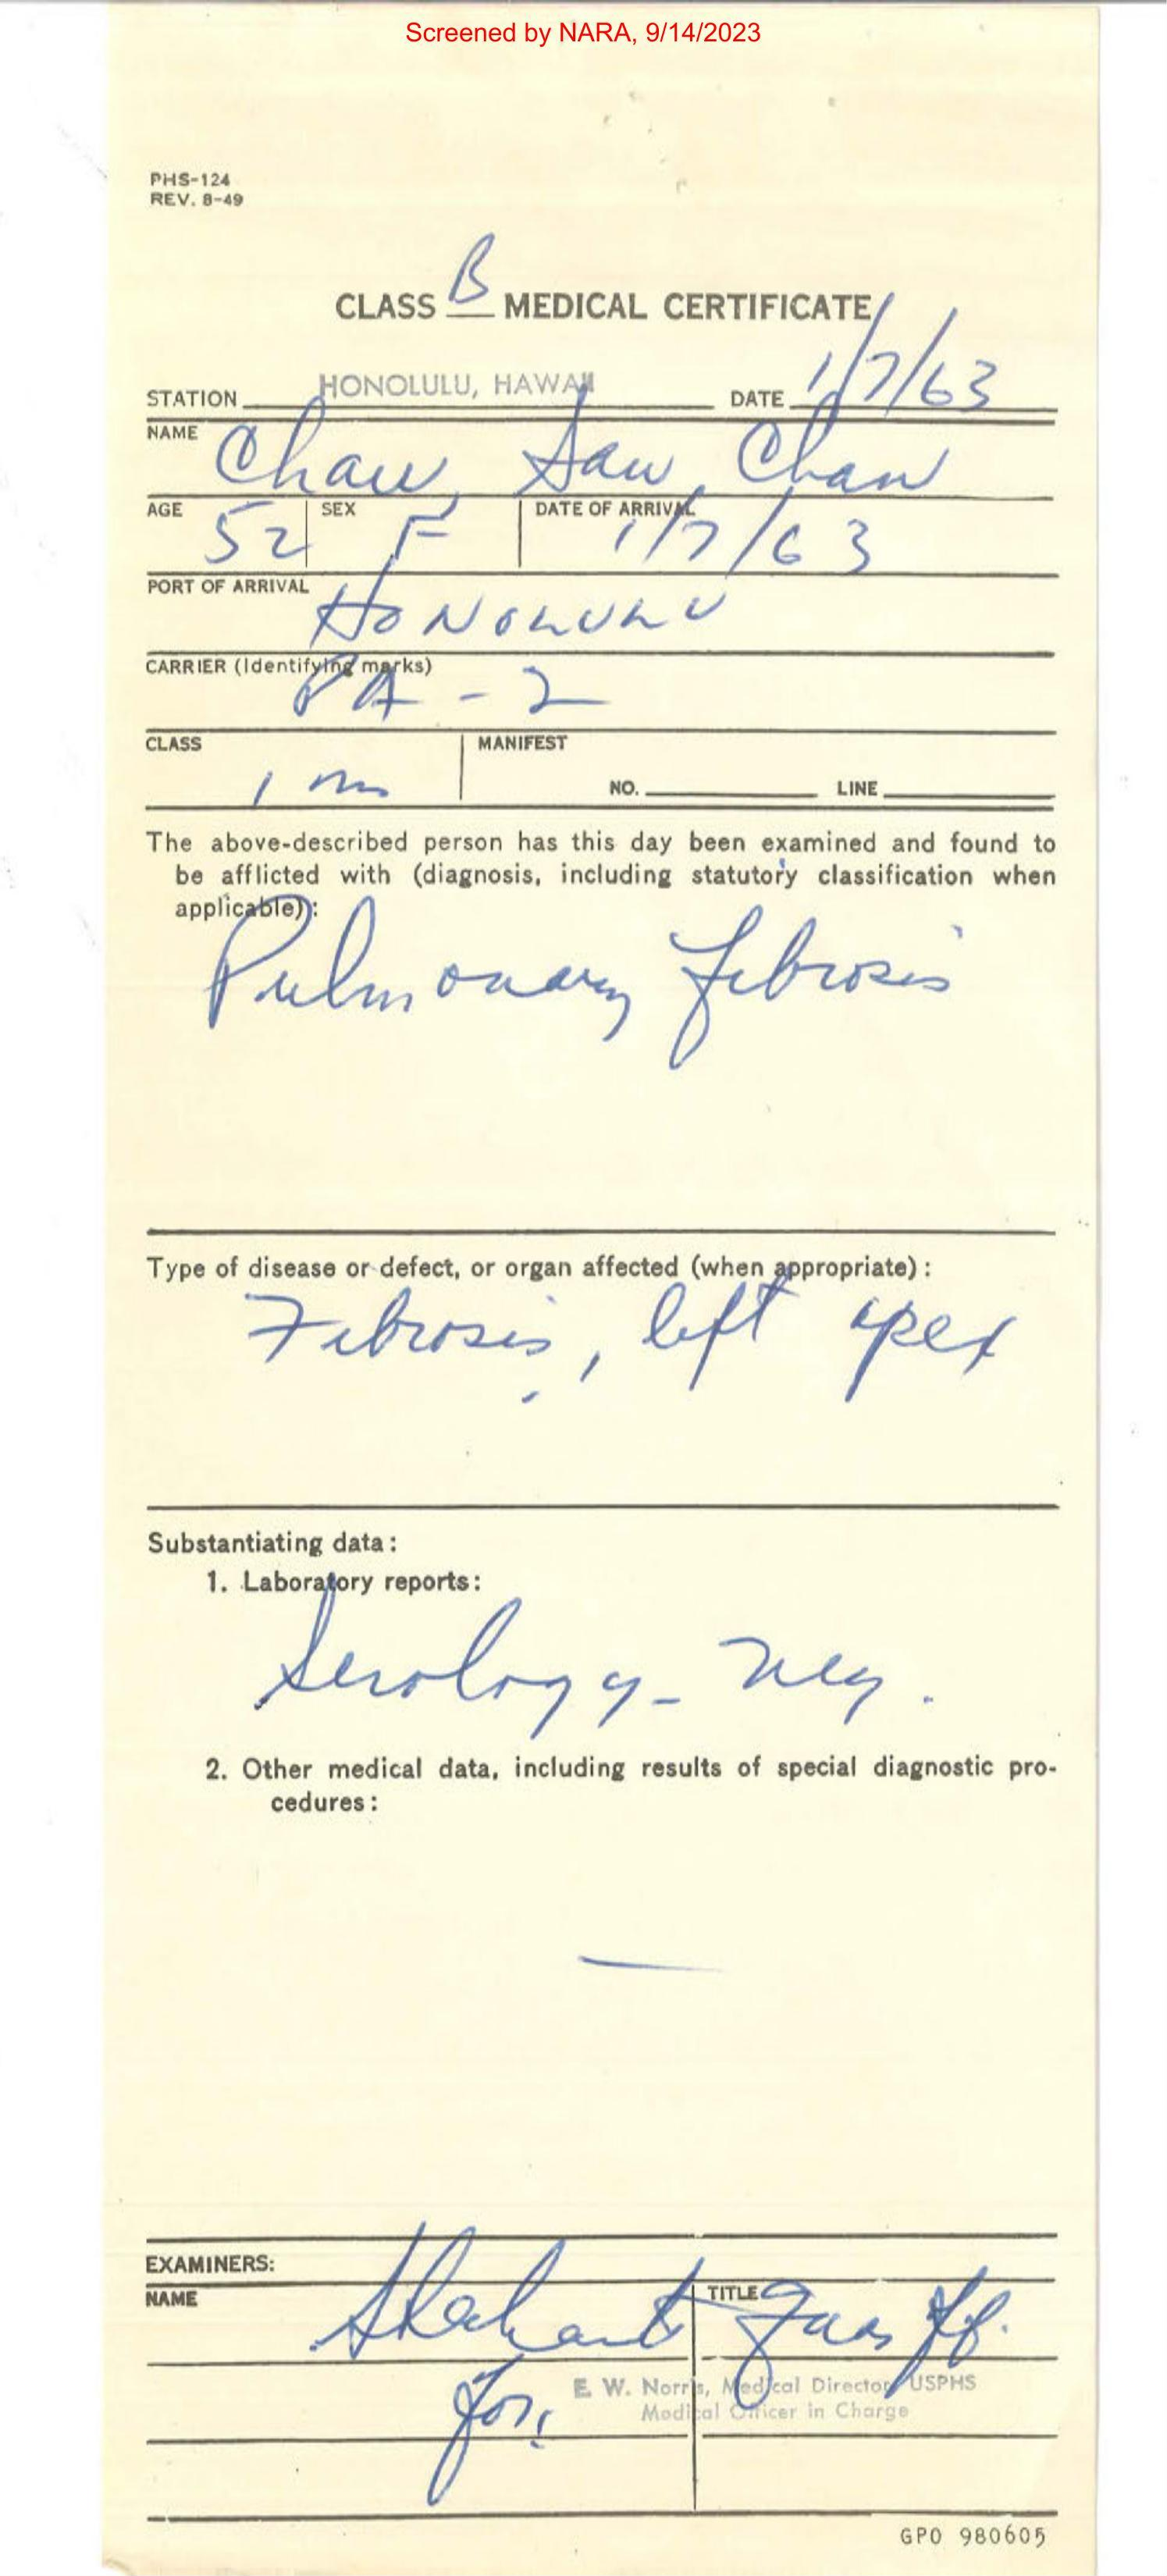 Screened by NARA, 9/14/2023
PHS-124
REV. 8-49
CLASS B MEDICAL CERTIFICATE
STATION HONOLULU, HAWAII DATE 1/7/63
NAME Chaw, Saw, Chan
AGE 52 SEX F DATE OF ARRIVAL 1/7/63
PORT OF ARRIVAL HONOLULU
CARRIER (Identifying marks) PA-2
CLASS 1 m MANIFEST
NO. LINE
The above-described person has this day been examined and found to
be afflicted with (diagnosis, including statutory classification when
applicable):
Pulmonary fibrosis
Type of disease or defect, or organ affected (when appropriate):
Fibrosis, left apex
Substantiating data:
1. Laboratory reports:
Serology - neg.
2. Other medical data, including results of special diagnostic pro-
cedures:
—
EXAMINERS:
NAME TITLE
for: E. W. Norris, Medical Director, USPHS
Medical Officer in Charge
GPO 980605